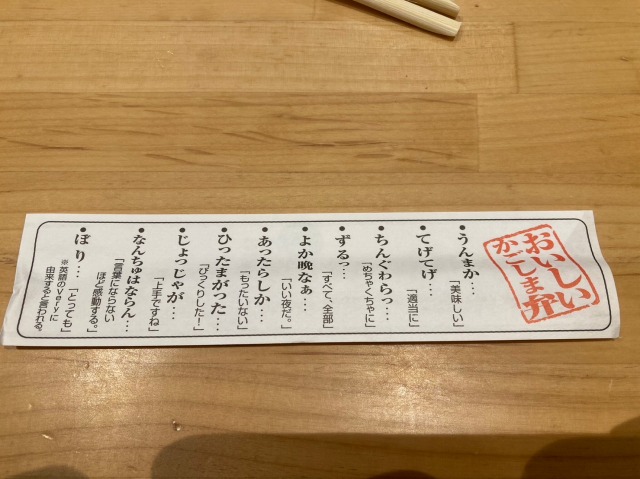 おいしい
かごしま弁
●うんまか…
「美味しい」
●てげてげ…
「適当に」
●ちんぐわらっ…
「めちゃくちゃに」
●ずるっ…
「すべて、全部」
●よか晩なぁ…
「いい夜だ。」
●あったらしか…
「もったいない」
●ひったまがった…
「びっくりした！」
●じょっじゃが…
「上手ですね」
●なんちゅはならん…
「言葉にならない
ほど感動する。」
●ぼり…「とっても」
※英語のveryに
由来すると言われる。